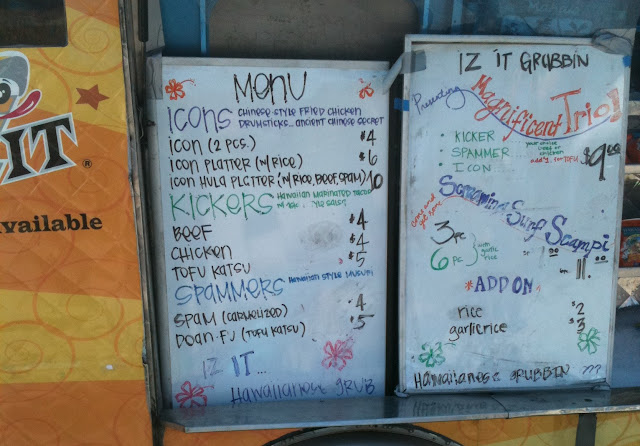 IT®
vailable
Menu
Icons Chinese-style fried chicken
drumsticks... ancient chinese secret
Icon (2 pcs.) $4
Icon platter (w/ rice) $6
Icon Hula platter (w/ rice, beef, spam) 10
Kickers Hawaiian marinated tacos
Beef $4
Chicken $4
Tofu Katsu $5
Spammers Hawaiian style musubi
Spam (carmelized) 4
Doan-Fu (Tofu Katsu) $5
IZ IT...
Hawaiianese grub
IZ IT GRUBBIN
Presenting
Magnificent Trio!
• Kicker
• Spammer
• Icon
your choice
chicken
add $1 for tofu
$9.00
Screaming Surf Scampi
3pc
6pc with garlic rice
11.00
*ADD ON*
rice $2
garlic rice $3
Hawaiianese grubbin ???